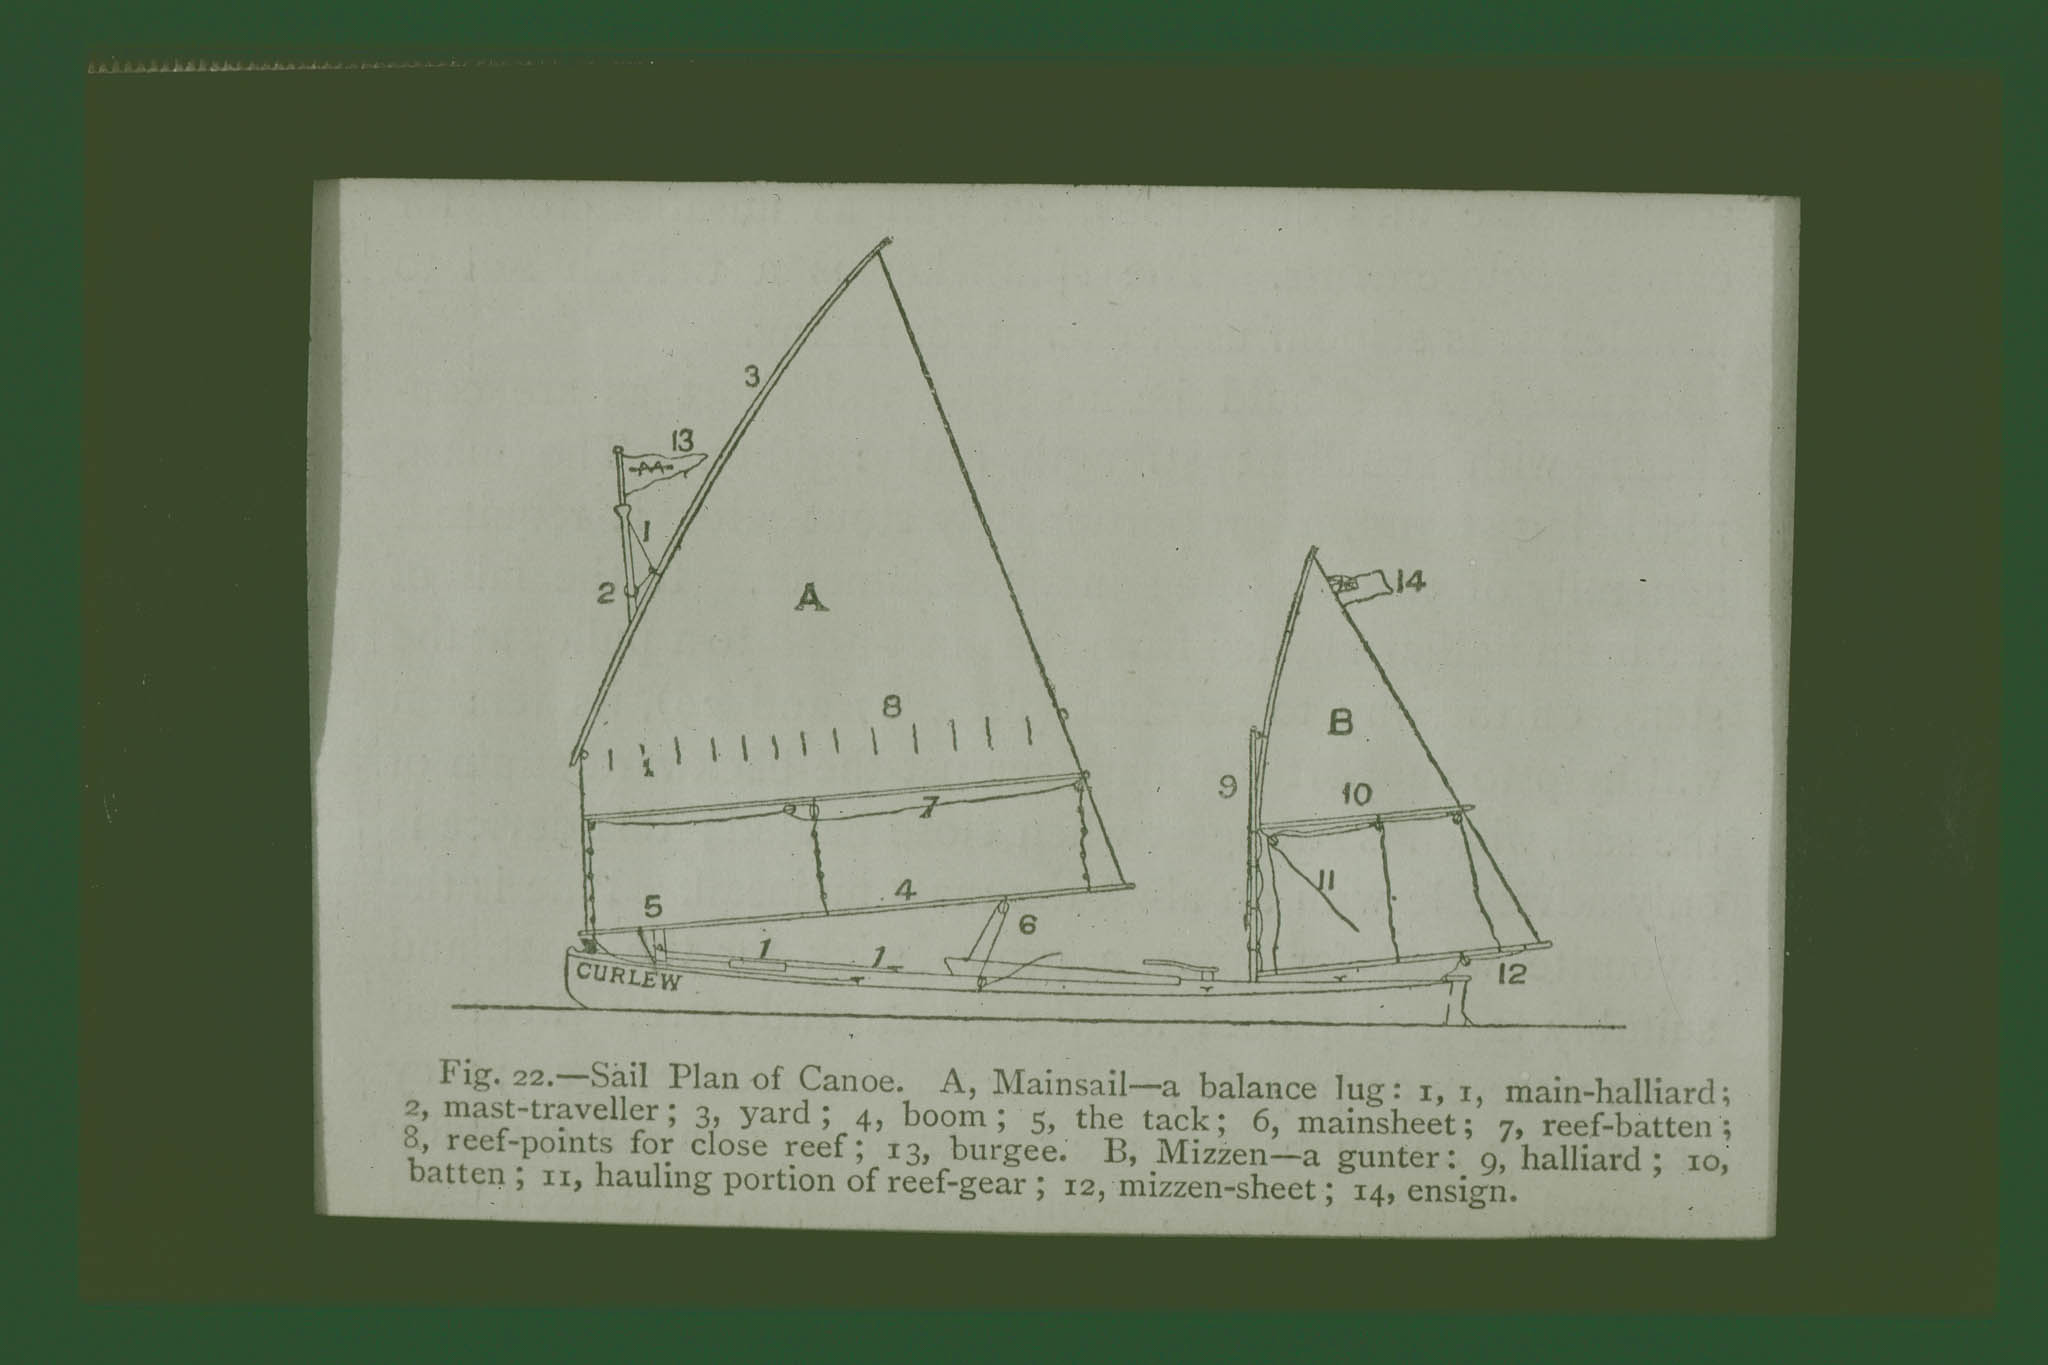 3
13
1
2
A
14
8
B
9
10
7
11
4
5
6
1
1
12
CURLEW
Fig. 22.—Sail Plan of Canoe. A, Mainsail—a balance lug: 1, 1, main-halliard;
2, mast-traveller; 3, yard; 4, boom; 5, the tack; 6, mainsheet; 7, reef-batten;
8, reef-points for close reef; 13, burgee. B, Mizzen—a gunter: 9, halliard; 10,
batten; 11, hauling portion of reef-gear; 12, mizzen-sheet; 14, ensign.